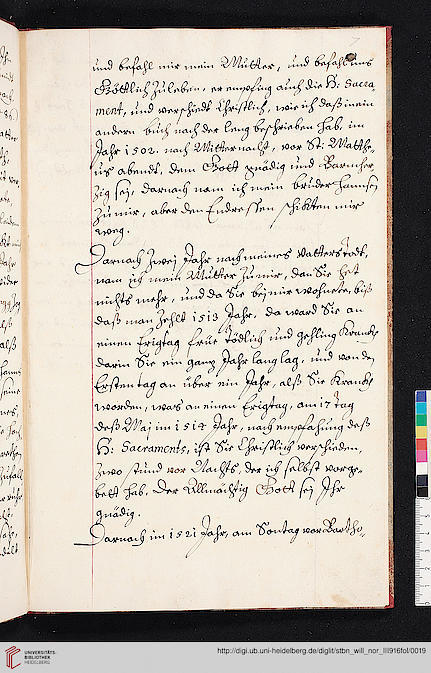 und befahl mir mein Mutter, und befahl uns
Göttlich zu leben, er empfing auch die H: Sacra,
ment, und verschiedt Christlich, wie ich daß in ein
andern buch nach der leng beschrieben hab, im
Jahr 1502. nach Mitternacht, vor St: Matthe,
us abendt, dem Gott gnädig und Barmher
zig sej, darnach nam ich mein bruder Hannsen
zu mir, aber den Endressen schikten mir
weg.
Darnach zwej Jahr nach meines Vatters todt,
nam ich mein Mutter zu mir, dan Sie het
nichts mehr, und da Sie bej mir wohnete, biß
daß man Zehlt 1513 Jahr, da ward Sie an
einen Erigtag frue tödlich und gehling Kranck,
darin Sie ein ganz Jahr lang lag, und von dem
Ersten tag an über ein Jahr, alß Sie Kranck
worden, was an einen Erigtag, am 17 tag
deß Maj im 1514 Jahr, nach empfahung deß
H: Sacraments, ist Sie Christlich verschieden,
zwo stund vor Nachts, der ich selbst vorge,
bett hab. Der Allmächtig Gott sej Ihr
gnädig.
Darnach im 1521 Jahr, am Sontag vor Bartho,
UNIVERSITÄTS-
BIBLIOTHEK
HEIDELBERG
http://digi.ub.uni-heidelberg.de/diglit/stbn_will_nor_III916fol/0019